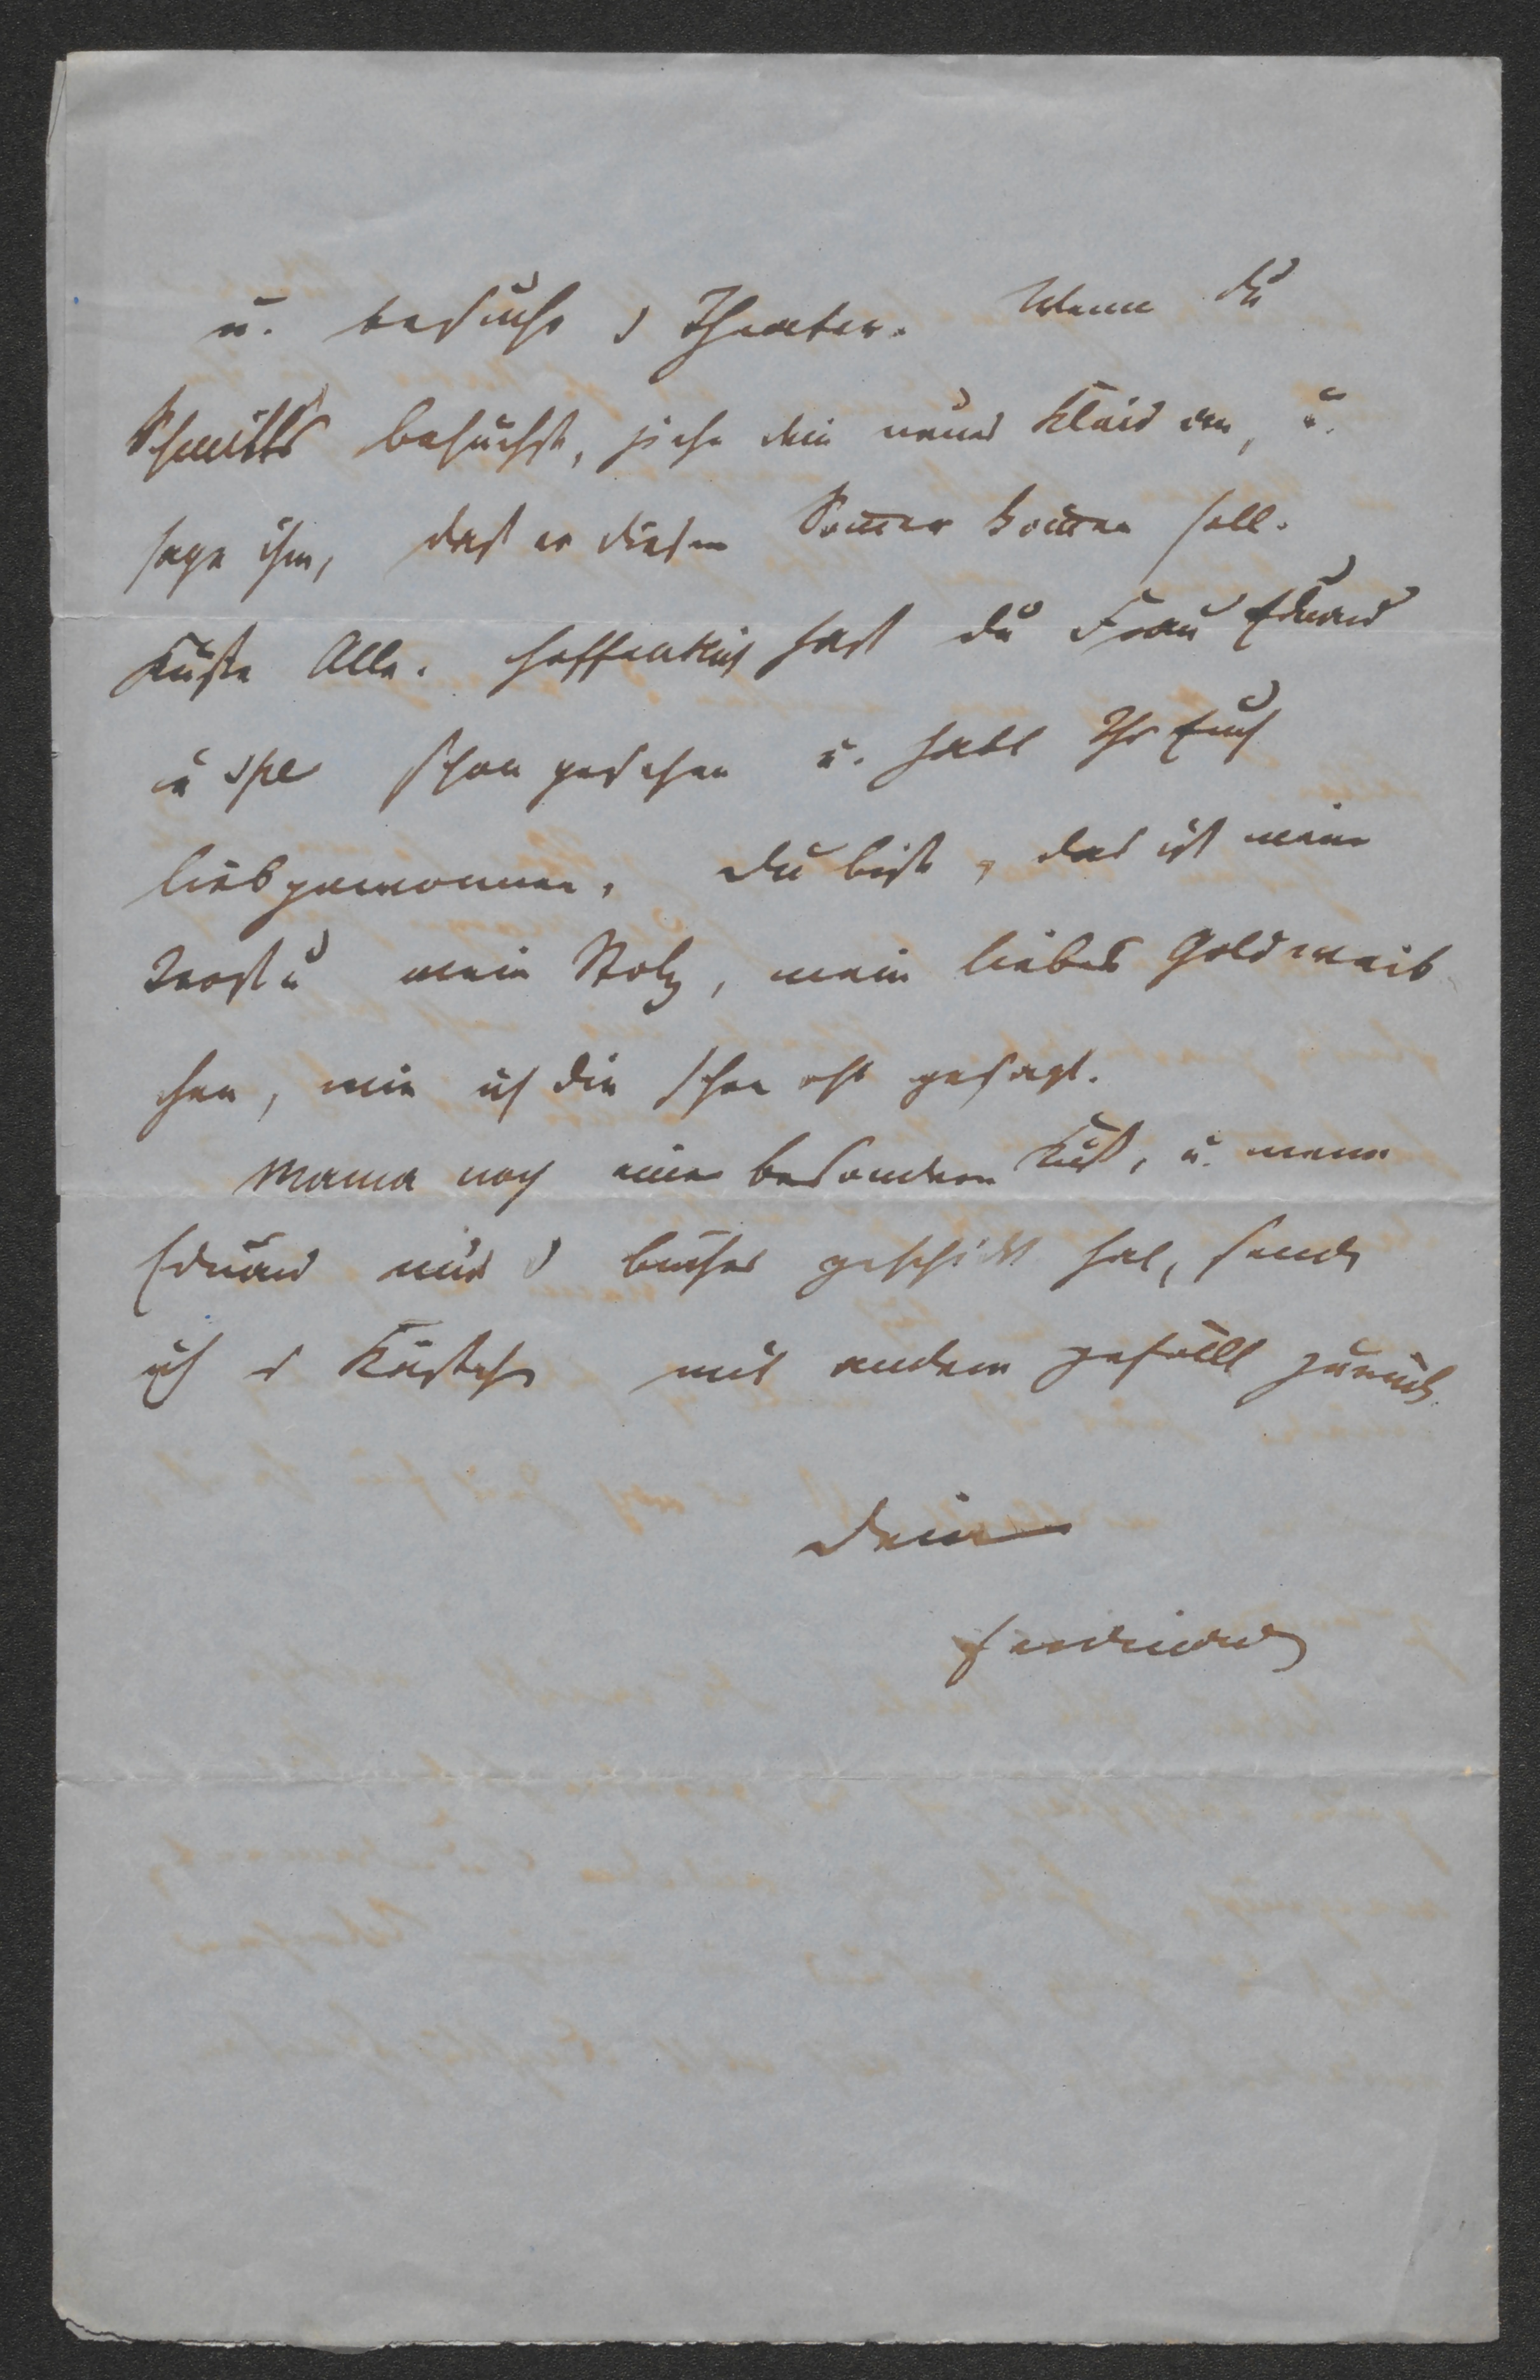 u. besuche d Theater. Wenn Du
Schmitts besuchst, ziehe dein neues Kleid an, u.
sage ihm, daß er diesen Som̅er kom̅en soll.
Küße Alle. Hoffentlich hast du Frau Eduard
u schon gesehen u. habt Ihr Euch
liebgewonnen. Du bist, das ist mein
Trost u mein Stolz, mein liebes Goldweib
chen, wie ich dir schon oft gesagt.
Mama noch einen besondern Kuß, u. wenn
Eduard mir d Bücher geschickt hat, sende
ich d Kästchen mit andern gefüllt zurück.
Dein
Ferdinand